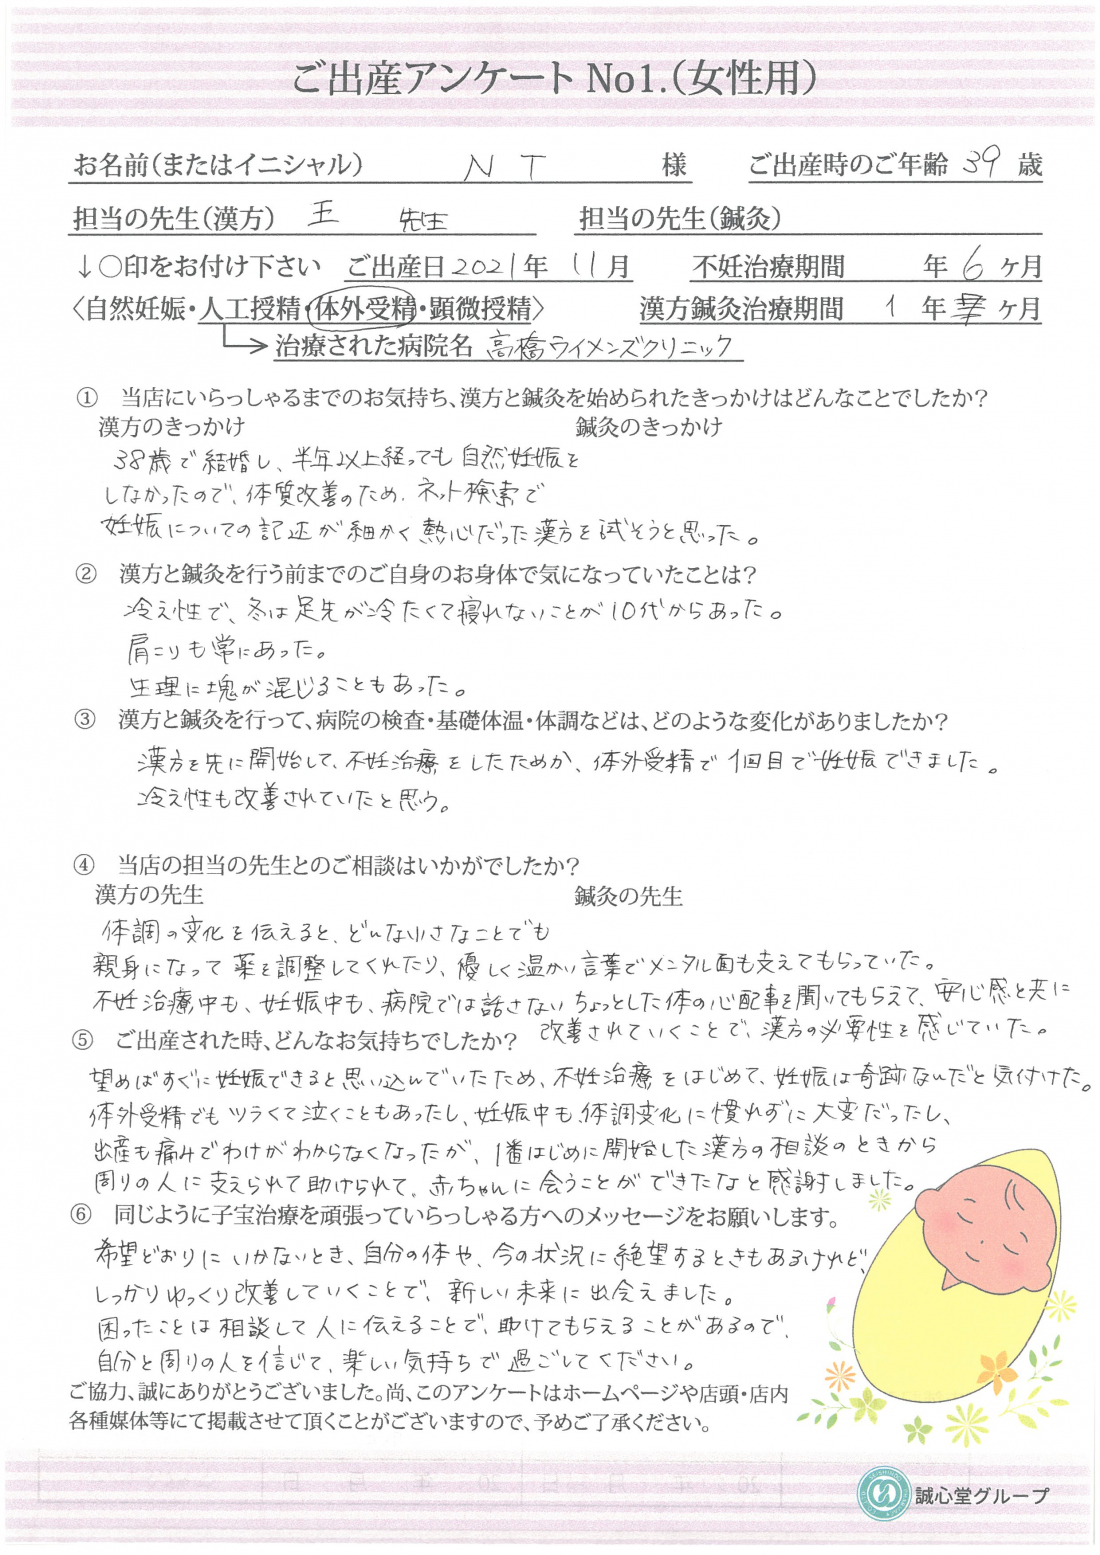 ご出産アンケート No1.(女性用)
お名前(またはイニシャル) NT 様 ご出産時のご年齢 39 歳
担当の先生(漢方) 王 先生 担当の先生(鍼灸)
↓○印をお付け下さい ご出産日 2021年 11月 不妊治療期間 年 6 ヶ月
〈自然妊娠・人工授精・体外受精・顕微授精〉 漢方鍼灸治療期間 1 年 ヶ月
治療された病院名 高橋ウイメンズクリニック
① 当店にいらっしゃるまでのお気持ち、漢方と鍼灸を始められたきっかけはどんなことでしたか?
漢方のきっかけ 鍼灸のきっかけ
38歳で結婚し、半年以上経っても自然妊娠を
しなかったので、体質改善のため、ネット検索で
妊娠についての記述が細かく熱心だった漢方を試そうと思った。
② 漢方と鍼灸を行う前までのご自身のお身体で気になっていたことは?
冷え性で、冬は足先が冷たくて寝れないことが10代からあった。
肩こりも常にあった。
生理に塊が混じることもあった。
③ 漢方と鍼灸を行って、病院の検査・基礎体温・体調などは、どのような変化がありましたか?
漢方を先に開始して、不妊治療をしたためか、体外受精で1回目で妊娠できました。
冷え性も改善されていたと思う。
④ 当店の担当の先生とのご相談はいかがでしたか?
漢方の先生 鍼灸の先生
体調の変化を伝えると、どんな小さなことでも
親身になって薬を調整してくれたり、優しく温かい言葉でメンタル面も支えてもらっていた。
不妊治療中も、妊娠中も、病院では話さないちょっとした体の心配事を聞いてもらえて、安心感と共に
改善されていくことで、漢方の必要性を感じていた。
⑤ ご出産された時、どんなお気持ちでしたか?
望めばすぐに妊娠できると思い込んでいたため、不妊治療をはじめて、妊娠は奇跡なんだと気付けた。
体外受精でもツラくて泣くこともあったし、妊娠中も、体調変化に慣れずに大変だったし、
出産も痛みでわけがわからなくなったが、1番はじめに開始した漢方の相談のときから
周りの人に支えられて助けられて、赤ちゃんに会うことができたなと感謝しました。
⑥ 同じように子宝治療を頑張っていらっしゃる方へのメッセージをお願いします。
希望どおりにいかないとき、自分の体や、今の状況に絶望するときもあるけれど、
しっかりゆっくり改善していくことで、新しい未来に出会えました。
困ったことは相談して人に伝えることで、助けてもらえることがあるので、
自分と周りの人を信じて、楽しい気持ちで過ごしてください。
ご協力、誠にありがとうございました。尚、このアンケートはホームページや店頭・店内
各種媒体等にて掲載させて頂くことがございますので、予めご了承ください。
誠心堂グループ